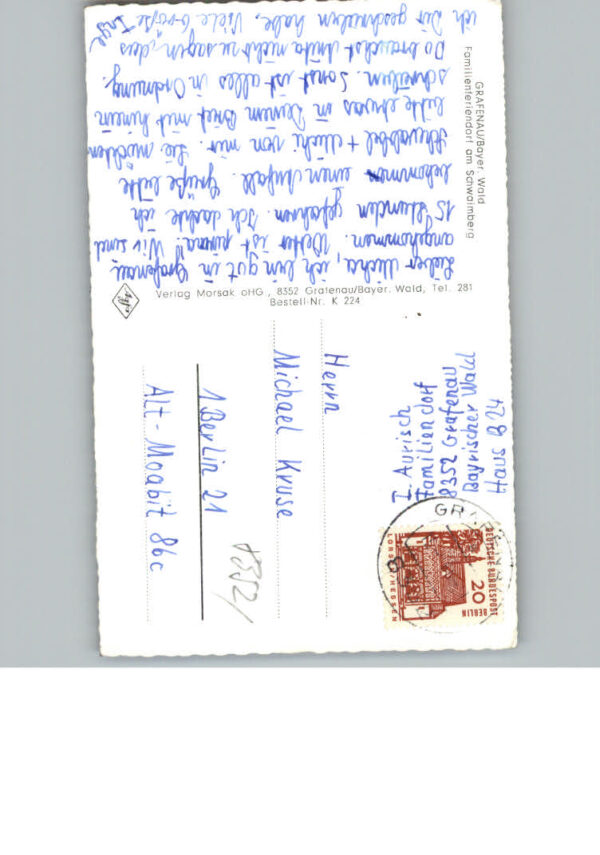 GRAFENAU/Bayer. Wald
Familienferiendorf am Schwaimberg
Lieber Micha, ich bin gut in Grafenau
angekommen. Wetter ist prima! Wir sind
15 Stunden gefahren. Ich dachte ich
bekomme einen Anfall. Grüße bitte
+ Michi von mir. Sie möchten
bitte etwas in Deinem Brief mit hinein
schreiben. Sonst ist alles in Ordnung.
Du brauchst Anita nicht zu sagen, dass
ich Dir geschrieben habe. Viele Grüße Inge
Agfa
Verlag Morsak oHG, 8352 Grafenau/Bayer. Wald, Tel. 281
Bestell-Nr. K 224
I. Aurisch
Familiendorf
8352 Grafenau
Bayrischer Wald
Haus B 24
DEUTSCHE BUNDESPOST
BERLIN
20
LORSCH/HESSEN
Herrn
Michael Kruse
1 Berlin 21
Alt-Moabit 86c